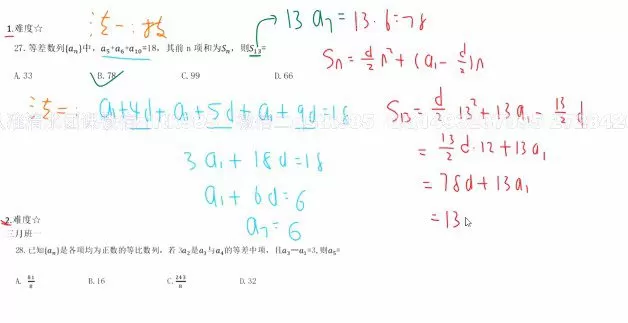 法一:技
13 a₇ = 13·6=78
1.难度☆
27. 等差数列{aₙ}中, a₅+a₆+a₁₀=18, 其前 n 项和为Sₙ, 则S₁₃=
A. 33 B. 78 C. 99 D. 66
Sₙ = d/2 n² + (a₁ - d/2)n
法二: a₁+4d + a₁ + 5d + a₁ + 9d = 18
3a₁ + 18d = 18
a₁ + 6d = 6
a₇ = 6
S₁₃ = d/2 13² + 13a₁ - 13/2 d
= 13/2 d·12 + 13a₁
= 78d + 13a₁
= 13
2.难度☆
三月班一
28. 已知{aₙ}是各项均为正数的等比数列, 若 3a₂是a₃与a₄的等差中项, 且a₃-a₁=3,则a₅=
A. 81/8 B. 16 C. 243/8 D. 32